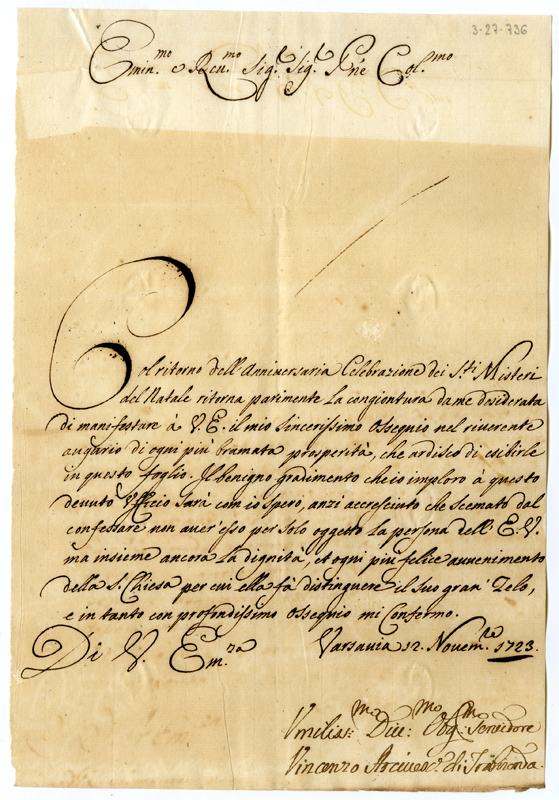 3-27-736
Emin.mo e Rev.mo Sig.r Sig.r Prie Col.mo
Col ritorno dell'Anniversaria Celebrazione dei S.ti Misteri
del Natale ritorna parimente la congiontura da me desiderata
di manifestare à V. E. il mio sincerissimo ossequio nel riverente
augurio di ogni più bramata prosperità, che ardisco di esibirle
in questo foglio. Il benigno gradimento che io imploro à questo
devuto Ufficio sarà com'io spero, anzi accresciuto che scemato dal
confessare non aver'esso per solo oggetto la persona dell'E. V.
ma insieme ancora la dignità, et ogni più felice avvenimento
della S. Chiesa per cui ella fà distinguere il suo gran' Zelo,
e in tanto con profondissimo ossequio mi confermo.
Di V. Em.za Varsavia 12. Novem.re 1723.
Vmiliss:mo Div:mo Obg:mo Servidore
Vincenzo Arcives.o di